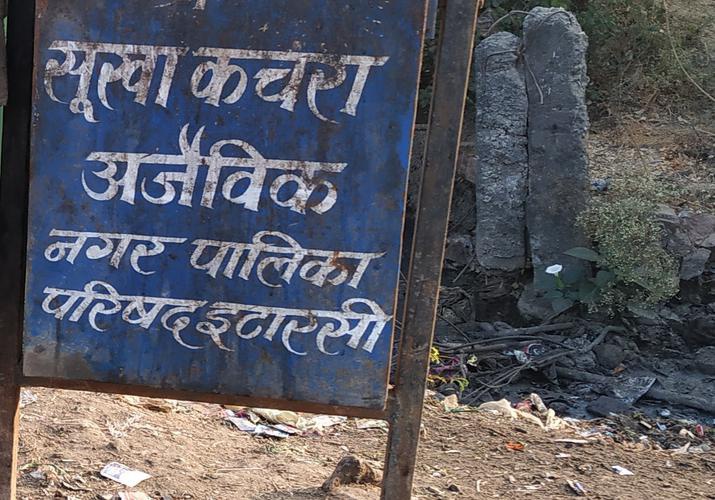 सूखा कचरा
अजैविक
नगर पालिका
परिषद इटारसी